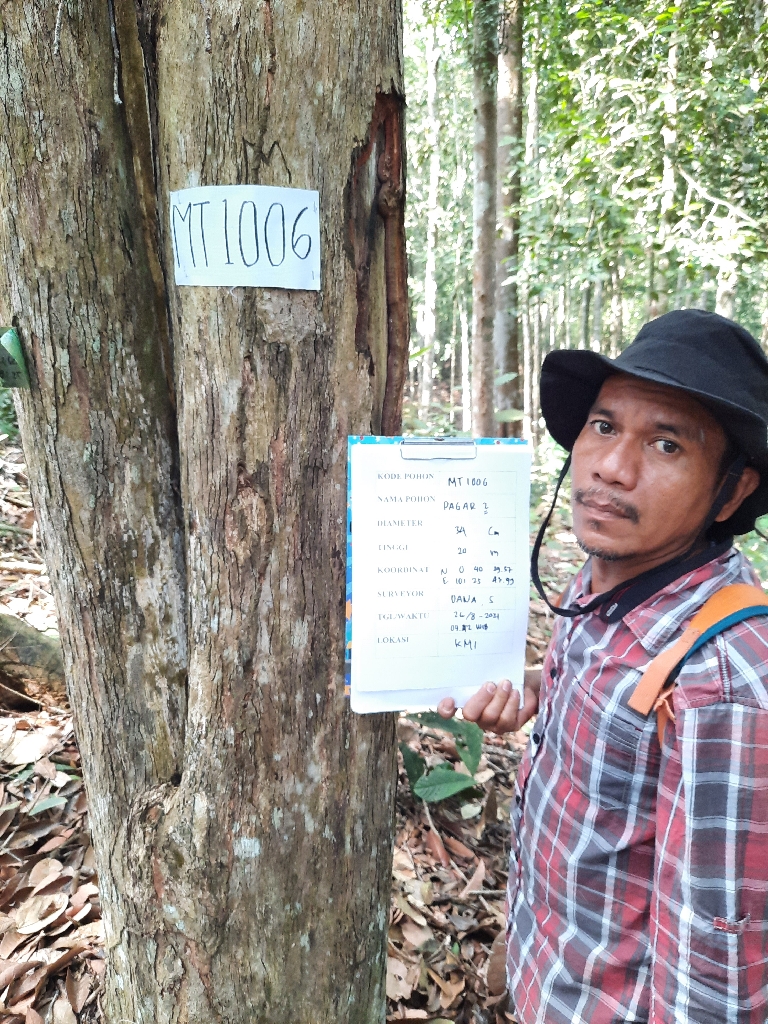 MT1006
KODE POHON MT1006
NAMA POHON PAGAR 2
DIAMETER 34 Cm
TINGGI 20 m
KOORDINAT N 0 40 39.57
E 101 25 47.99
SURVEYOR DANA. S
TGL/WAKTU 26/8-2021
WIB
LOKASI KM1